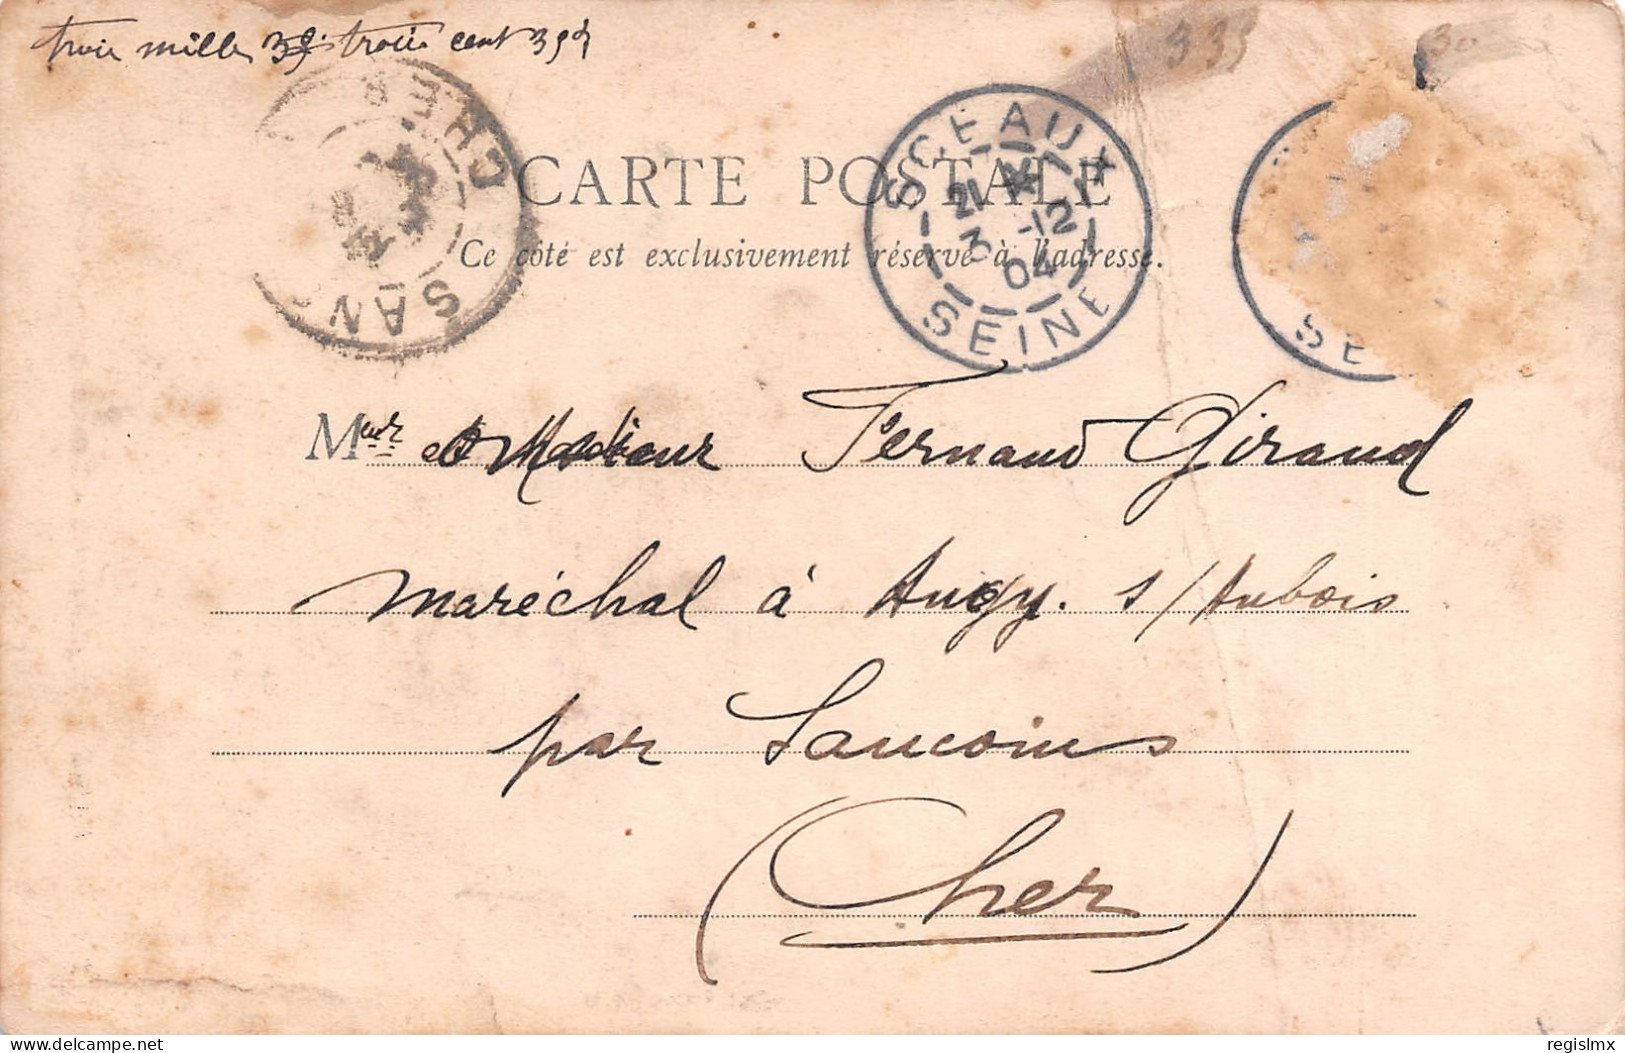 trois mille 35 trois cent
335
30
CHER
SAN
SCEAUX
21 3 -12 04
SEINE
SE
CARTE POSTALE
Ce côté est exclusivement réservé à l'adresse.
M Fernand Giraud
maréchal à Augy. s/Aubois
par Sancoins
(Cher)
delcampe.net
regislmx